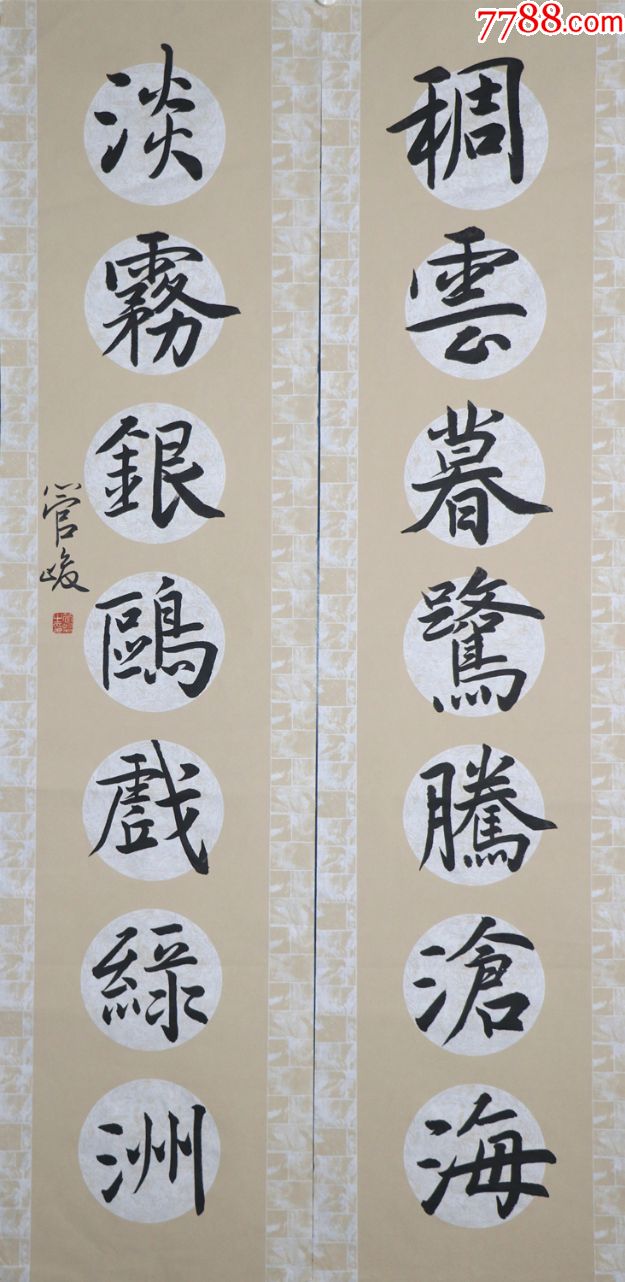 7788.com
稠雲暮鷺騰滄海
淡霧銀鷗戲綠洲
管峻